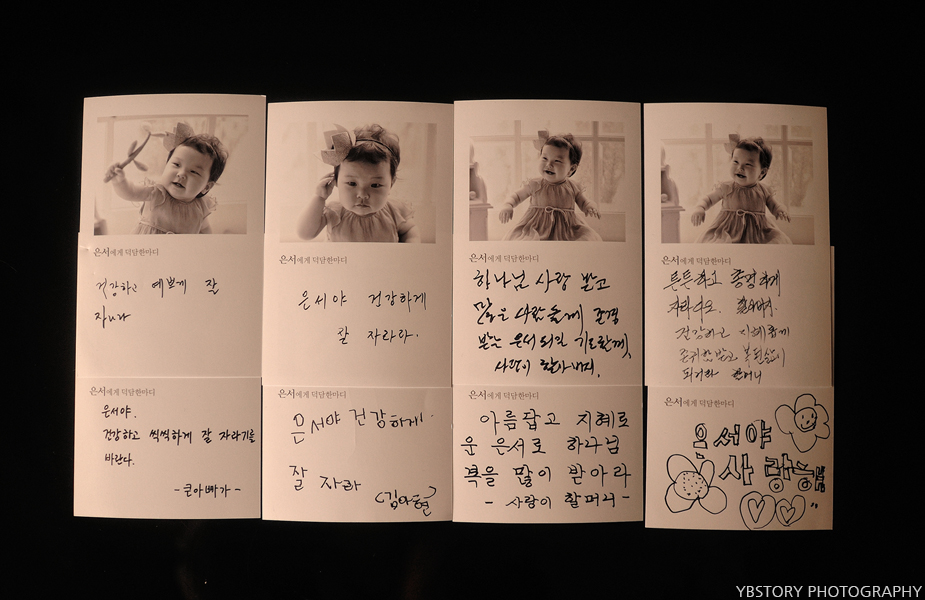 은서에게 덕담한마디
건강하고 예쁘게 잘
자라라
은서에게 덕담한마디
은서야 건강하게
잘 자라라.
은서에게 덕담한마디
하나님 사랑 받고
많은 사람들께 존경
받는 은서 되길 기도할께,
사랑이 할아버지.
은서에게 덕담한마디
튼튼하고 총명하게
자라다오. 할아버지.
건강하고 지혜롭게
존귀함받고 복된삶이
되거라 할머니
은서에게 덕담한마디
은서야.
건강하고 씩씩하게 잘 자라기를
바란다.
-큰아빠가-
은서에게 덕담한마디
은서야 건강하게.
잘 자라
은서에게 덕담한마디
아름답고 지혜로
운 은서로 하나님
복을 많이 받아라
- 사랑이 할머니 -
은서에게 덕담한마디
은서야
사랑해
YBSTORY PHOTOGRAPHY